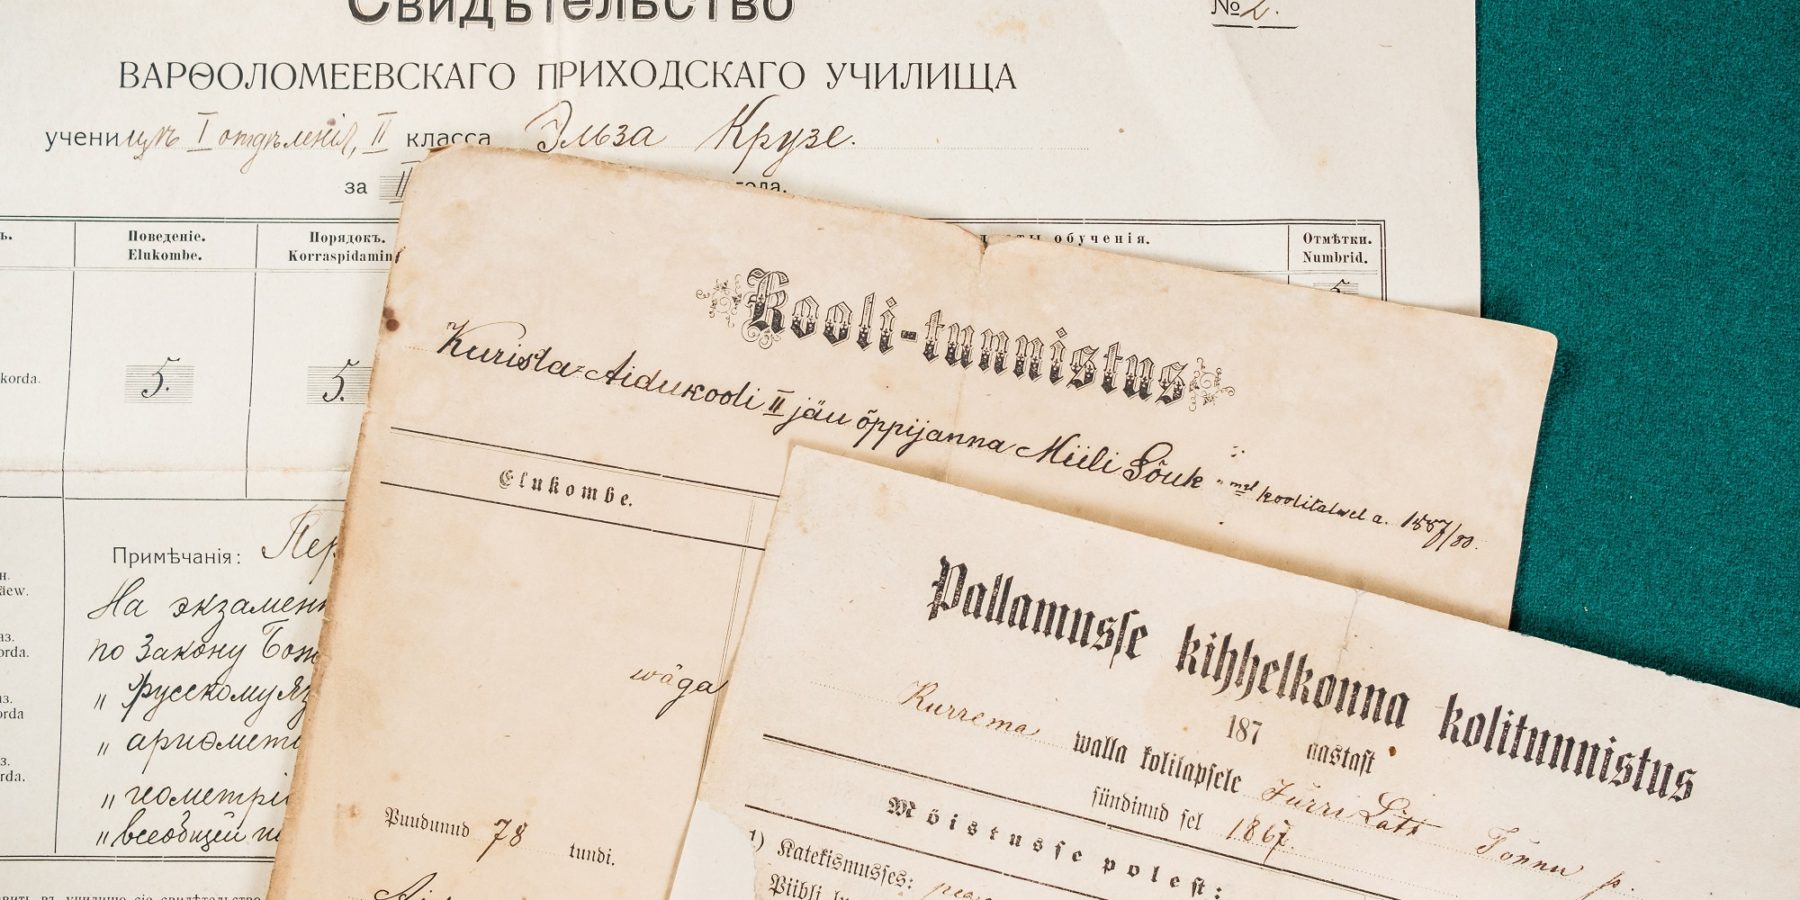 Свидѣтельство
№ 2.
ВАРѲОЛОМЕЕВСКАГО ПРИХОДСКАГО УЧИЛИЩА
ученицѣ I отдѣленія, II класса Эльза Крузе.
за года.
Поведеніе.
Elukombe.
Порядокъ.
Korraspidamin
обученія.
Отмѣтки.
Numbrid.
5.
5.
5
korda.
Примѣчанія: Пер
На экзамен
по Закону Бож
" Русскому яз
" ариѳмети
" геометрі
" всеобщей
Kooli-tunnistus
Kurista-Aidukooli II jäu õppijanna Miili Sõuk mel koolitalwel a. 1887/88.
Elukombe.
wäga
Puudunud 78 tundi.
Pallamusse kihhelkonna kolitunnistus
187 aastast
Kurrema walla kolilapsele Jürri Läts Tönnu p.
sündinud sel 1867.
Möistusse polest:
1) Katekismusses:
Piibli